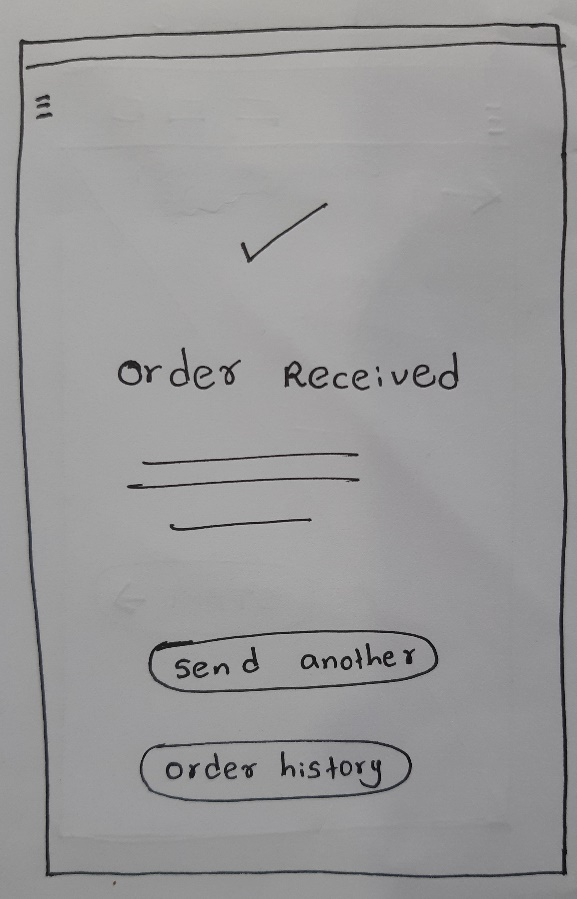 order Received
send another
order history